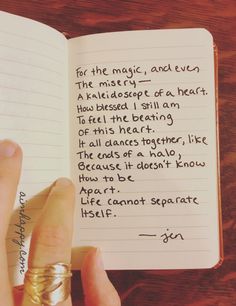 For the magic, and even
The misery—
A kaleidoscope of a heart.
How blessed I still am
To feel the beating
Of this heart.
It all dances together, like
The ends of a halo,
Because it doesn't know
How to be
Apart.
Life cannot separate
Itself.
—jen
aimhappy.com